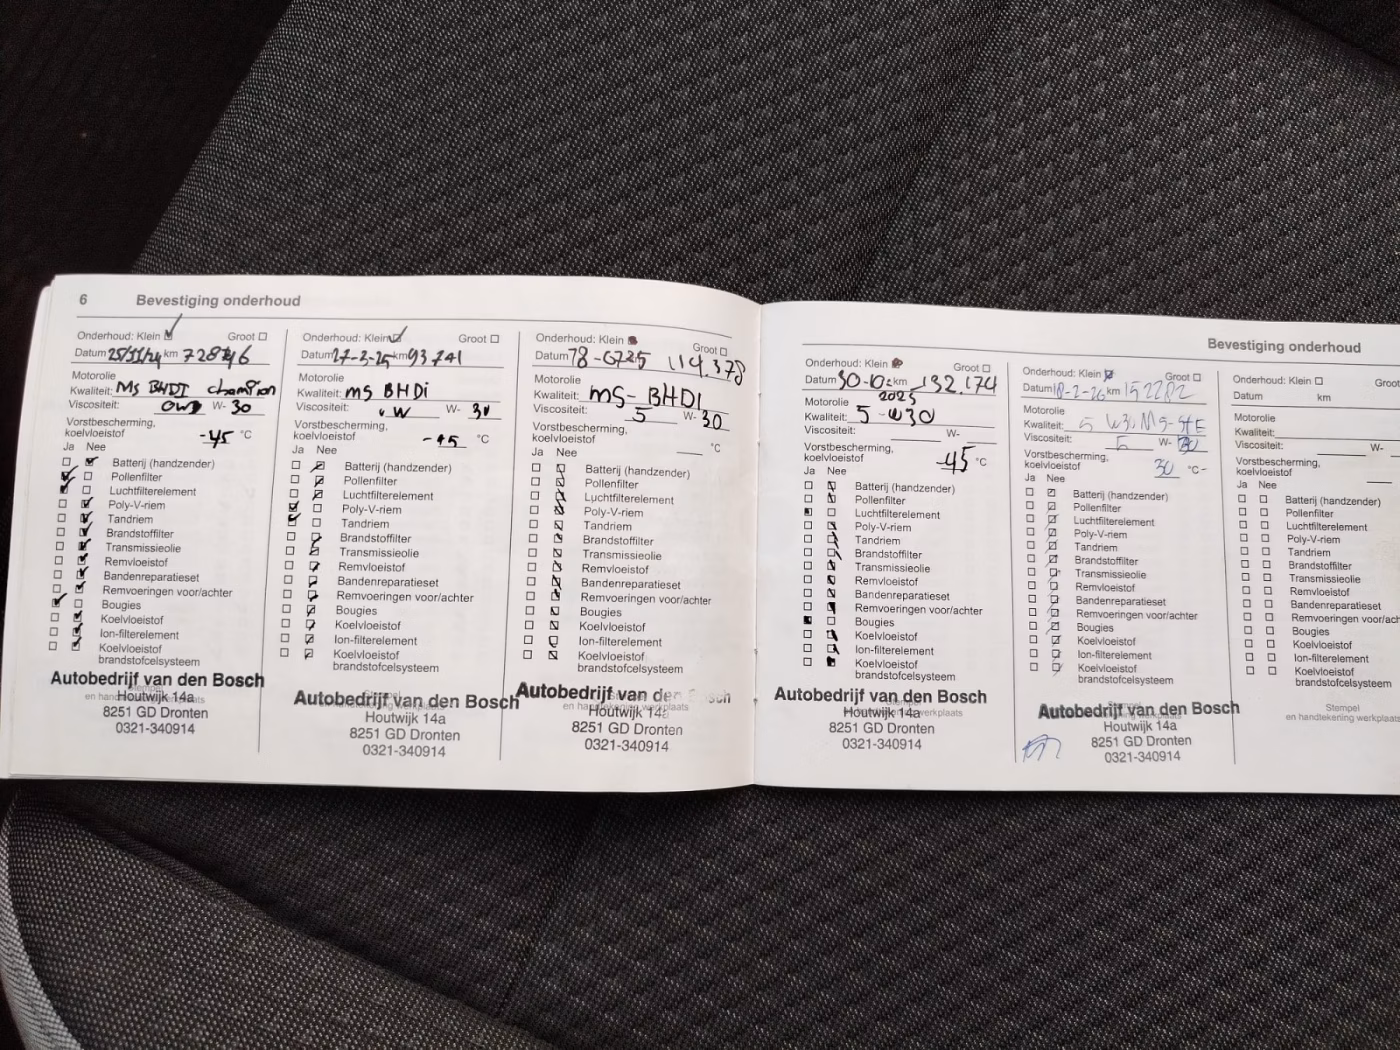 6 Bevestiging onderhoud
Onderhoud: Klein Groot
Datum 25/11/24 km 728746
Motorolie
Kwaliteit: MS BHDI champion
Viscositeit: 0W W- 30
Vorstbescherming,
koelvloeistof -45 °C
Ja Nee
Batterij (handzender)
Pollenfilter
Luchtfilterelement
Poly-V-riem
Tandriem
Brandstoffilter
Transmissieolie
Remvloeistof
Bandenreparatieset
Remvoeringen voor/achter
Bougies
Koelvloeistof
Ion-filterelement
Koelvloeistof
brandstofcelsysteem
Autobedrijf van den Bosch
Houtwijk 14a
8251 GD Dronten
0321-340914
Onderhoud: Klein Groot
Datum 27-2-25 km 93741
Motorolie
Kwaliteit: MS BHDi
Viscositeit: W W- 30
Vorstbescherming,
koelvloeistof -45 °C
Ja Nee
Batterij (handzender)
Pollenfilter
Luchtfilterelement
Poly-V-riem
Tandriem
Brandstoffilter
Transmissieolie
Remvloeistof
Bandenreparatieset
Remvoeringen voor/achter
Bougies
Koelvloeistof
Ion-filterelement
Koelvloeistof
brandstofcelsysteem
Autobedrijf van den Bosch
Houtwijk 14a
8251 GD Dronten
0321-340914
Onderhoud: Klein Groot
Datum 18-0725 114.378
Motorolie
Kwaliteit: MS-BHDI
Viscositeit: 5 W- 30
Vorstbescherming,
koelvloeistof °C
Ja Nee
Batterij (handzender)
Pollenfilter
Luchtfilterelement
Poly-V-riem
Tandriem
Brandstoffilter
Transmissieolie
Remvloeistof
Bandenreparatieset
Remvoeringen voor/achter
Bougies
Koelvloeistof
Ion-filterelement
Koelvloeistof
brandstofcelsysteem
Autobedrijf van den Bosch
en handtekening werkplaats
Houtwijk 14a
8251 GD Dronten
0321-340914
Bevestiging onderhoud
Onderhoud: Klein Groot
Datum 30-10 km 132.174
2025
Motorolie
Kwaliteit: 5-W30
Viscositeit: W-
Vorstbescherming,
koelvloeistof -45 °C
Ja Nee
Batterij (handzender)
Pollenfilter
Luchtfilterelement
Poly-V-riem
Tandriem
Brandstoffilter
Transmissieolie
Remvloeistof
Bandenreparatieset
Remvoeringen voor/achter
Bougies
Koelvloeistof
Ion-filterelement
Koelvloeistof
brandstofcelsysteem
Autobedrijf van den Bosch
Houtwijk 14a
8251 GD Dronten
0321-340914
Onderhoud: Klein Groot
Datum 18-2-26 km 152282
Motorolie
Kwaliteit: 5 W30
Viscositeit: 5 W- 30
Vorstbescherming,
koelvloeistof 30 °C-
Ja Nee
Batterij (handzender)
Pollenfilter
Luchtfilterelement
Poly-V-riem
Tandriem
Brandstoffilter
Transmissieolie
Remvloeistof
Bandenreparatieset
Remvoeringen voor/achter
Bougies
Koelvloeistof
Ion-filterelement
Koelvloeistof
brandstofcelsysteem
Autobedrijf van den Bosch
Houtwijk 14a
8251 GD Dronten
0321-340914
Onderhoud: Klein Groot
Datum km
Motorolie
Kwaliteit:
Viscositeit: W-
Vorstbescherming,
koelvloeistof
Ja Nee
Batterij (handzender)
Pollenfilter
Luchtfilterelement
Poly-V-riem
Tandriem
Brandstoffilter
Transmissieolie
Remvloeistof
Bandenreparatieset
Remvoeringen voor/acht
Bougies
Koelvloeistof
Ion-filterelement
Koelvloeistof
brandstofcelsysteem
Stempel
en handtekening werkplaats